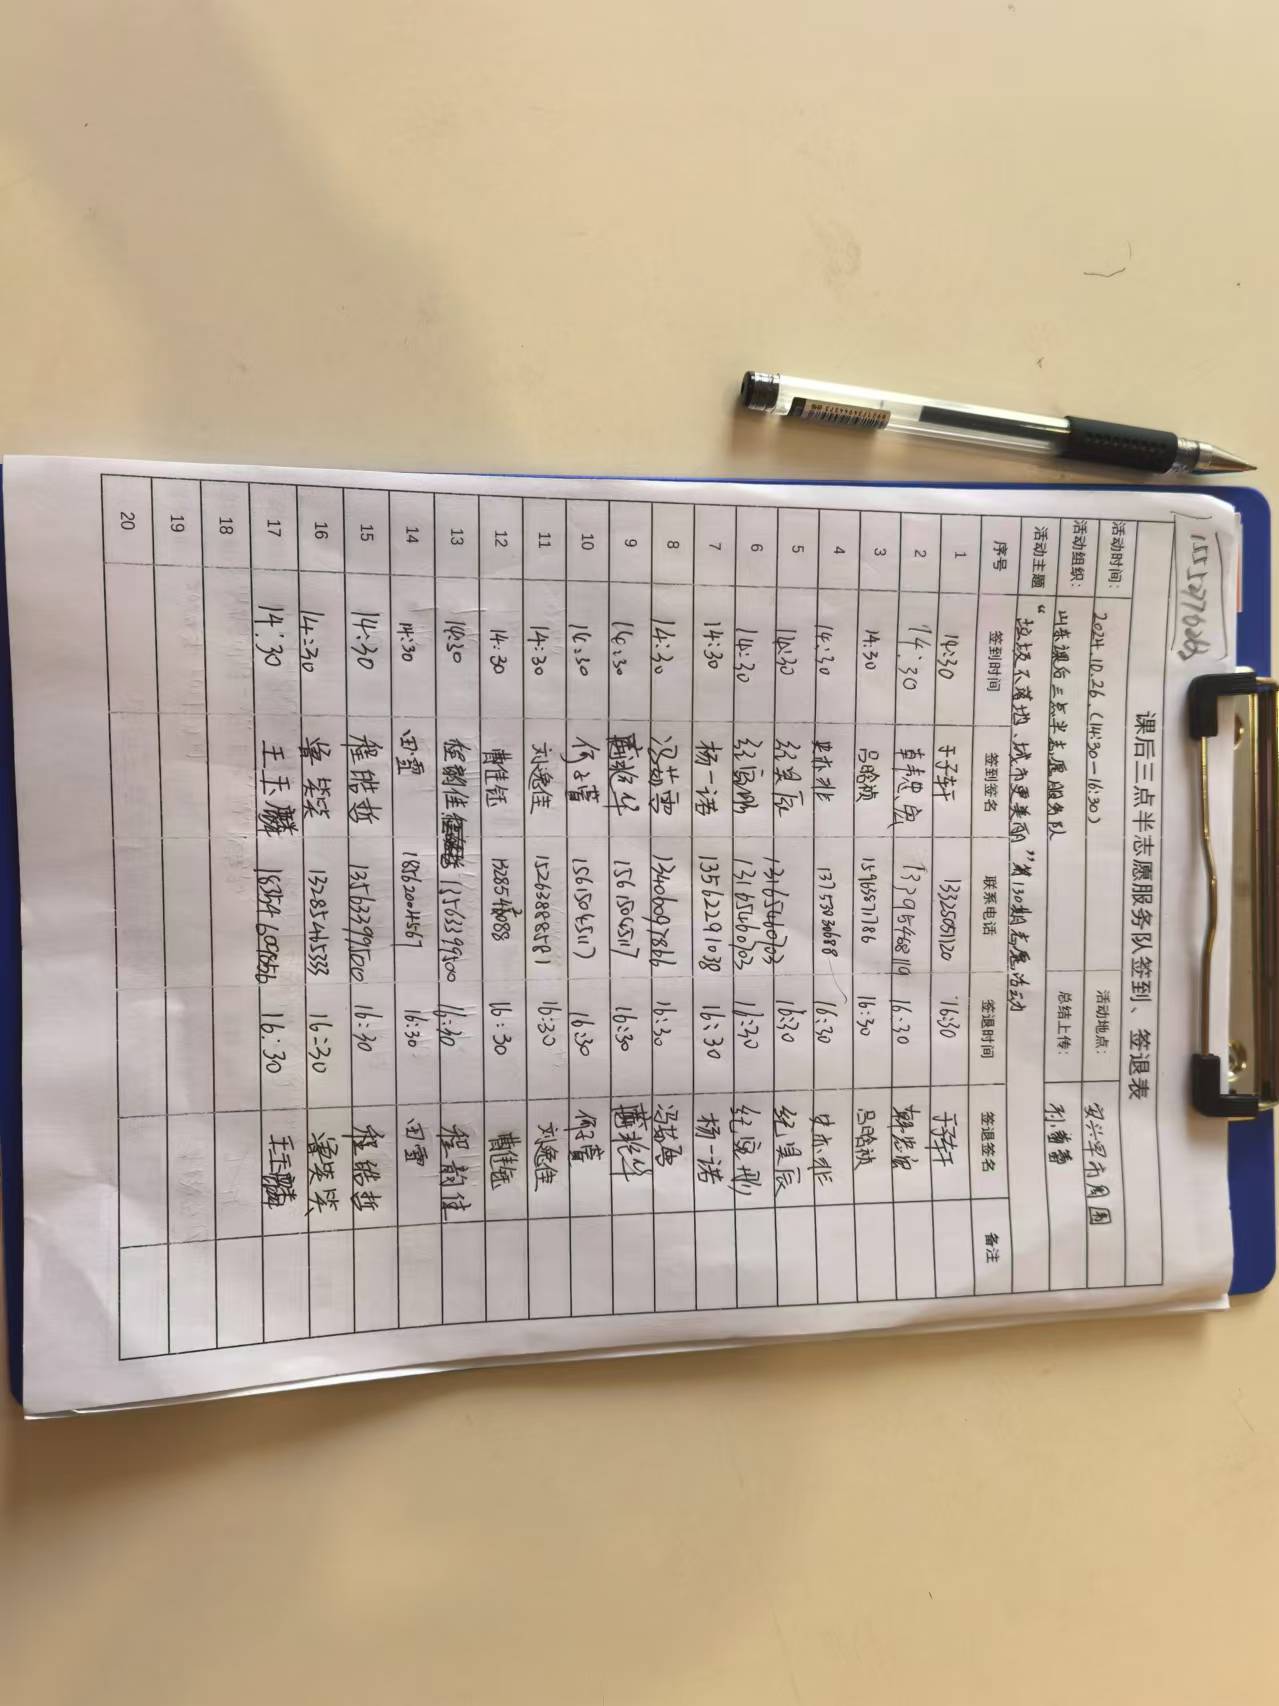 15552776268
课后三点半志愿服务队签到、签退表
活动时间： 2024.10.26.（14:30—16:30） 活动地点：
活动组织： 山东课后三点半志愿服务队 总结上传：
活动主题 “垃圾不落地、城市更美丽”第130期志愿活动
序号 签到时间 签到签名 联系电话 签退时间 签退签名 备注
1 14:30 于子轩 13325051120 16:30 于子轩
2 14:30 13395468119 16:30
3 14:30 吕晗祯 15963871786 16:30 吕晗祯
4 14:30 史亦非 16:30 史亦非
5 14:30 纪昊辰 13165460703 16:30 纪昊辰
6 14:30 13165460703 16:30
7 14:30 杨一诺 13562291038 16:30 杨一诺
8 14:30 冯茹雪 13406097866 16:30 冯茹雪
9 14:30 15615045117 16:30
10 14:30 何子萱 15615045117 16:30 何子萱
11 14:30 刘逸佳 15263888581 16:30 刘逸佳
12 14:30 曹佳钰 16:30 曹佳钰
13 14:30 程韵佳 1563399500 16:30 程韵佳
14 14:30 田雪 18562004567 16:30 田雪
15 14:30 程皓哲 16:30 程皓哲
16 14:30 笑笑 13285465333 16:30 笑笑
17 14:30 王玉麟 16:30 王玉麟
18
19
20